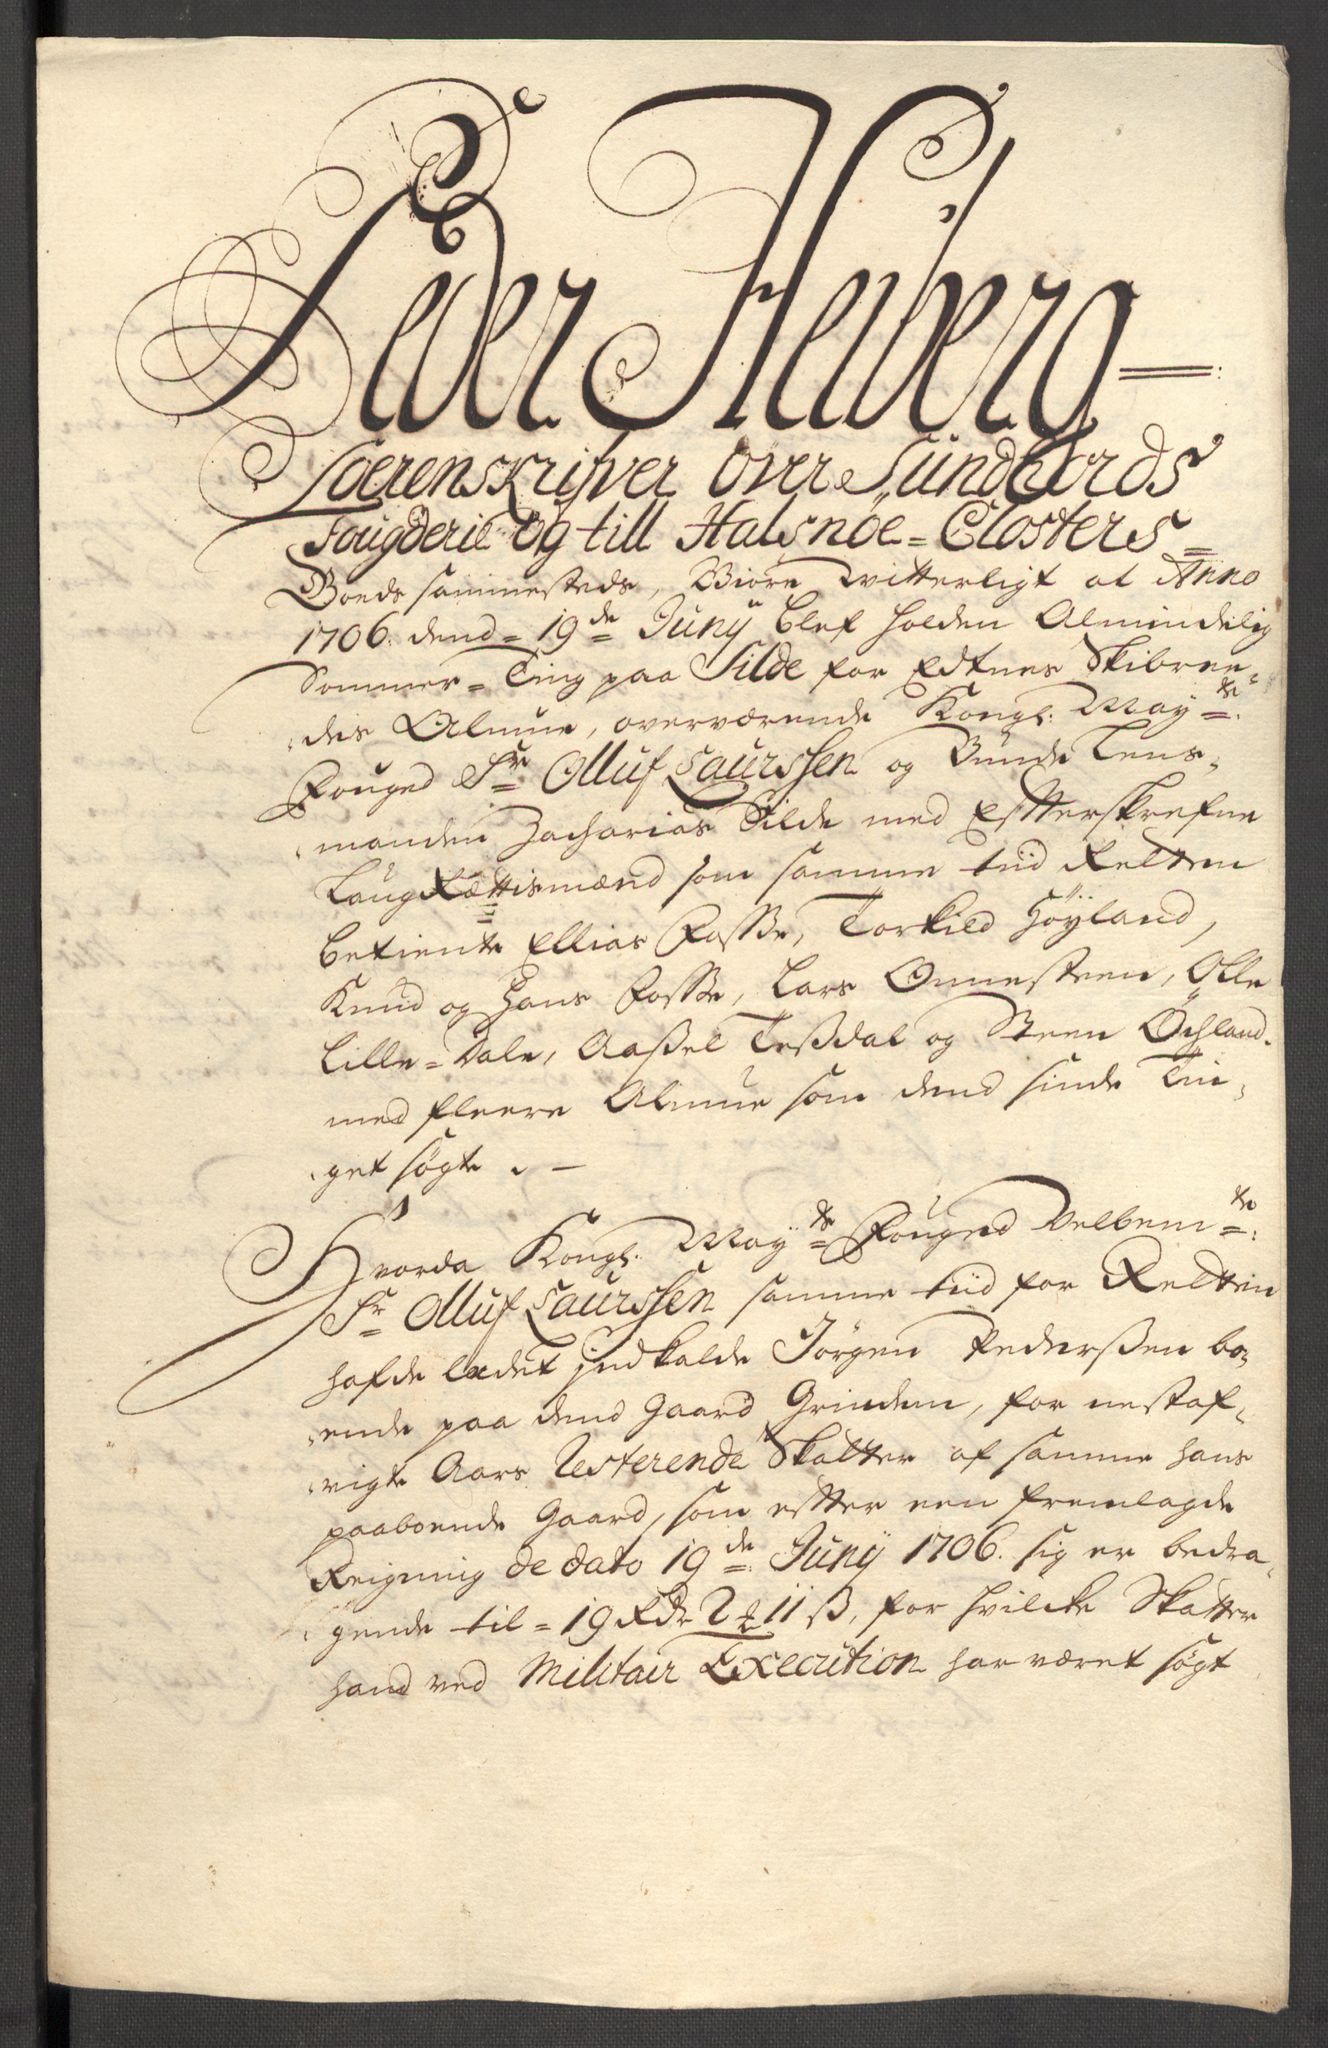 Peder Heiberg
Soerenskrifver over Sundhords
Fougderie og till Halsnöe-Closters
Goeds sammesteds, Giöre witterligt at Anno
1706. dend 19de Juny blef holden Almindelig
Sommer-Ting paa Silde for Edtnes Skibree-
des Almue, overværende Kongl: Mayts:
Fouged Sr Olluf Laurssen og Bunde Lens-
manden Zacharias Silde med Effterskrefne
LaugRættismænd som samme tiid Retten
betiente Ellias Fosse, Torkild Höyland,
Knud og Hans Fosse, Lars Ønnesteen, Olle
Lille-Dale, Aaßel Teßdal og Steen Öchland
med fleere Almue som dend sinde Tin-
get søgte. -
Hvorda Kongl: Mayts Fouged Velbemte:
Sr Olluf Laurssen samme tiid for Retten
hafde ladet indkalde Jörgen Pederßen bo-
ende paa dend gaard Grindem, for nestaf-
vigte Aars Resterende Skatter af samme hans
paaboende Gaard, som effter een fremlagde
Reigning de dato 19de Juny 1706. sig er bedra-
gende til 19 Rdr 2 ₻ 11 ß, for hvilcke Skatter
hand ved Militair Execution har været søgt